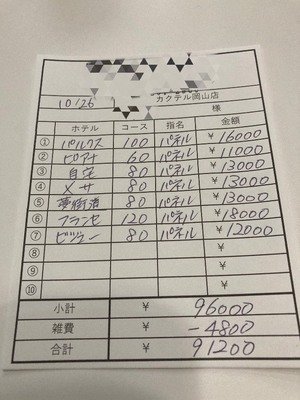 カクテル岡山店
10/26 様
ホテル コース 指名 金額
① パルクス 100 パネル ¥16000
② ピアナ 60 パネル ¥11000
③ 自宅 80 パネル ¥13000
④ メサ 80 パネル ¥13000
⑤ 夢街道 80 パネル ¥13000
⑥ フランセ 120 パネル ¥18000
⑦ ビジュー 80 パネル ¥12000
⑧ ¥
⑨ ¥
⑩ ¥
小計 ¥ 96000
雑費 ¥ -4800
合計 ¥ 91200